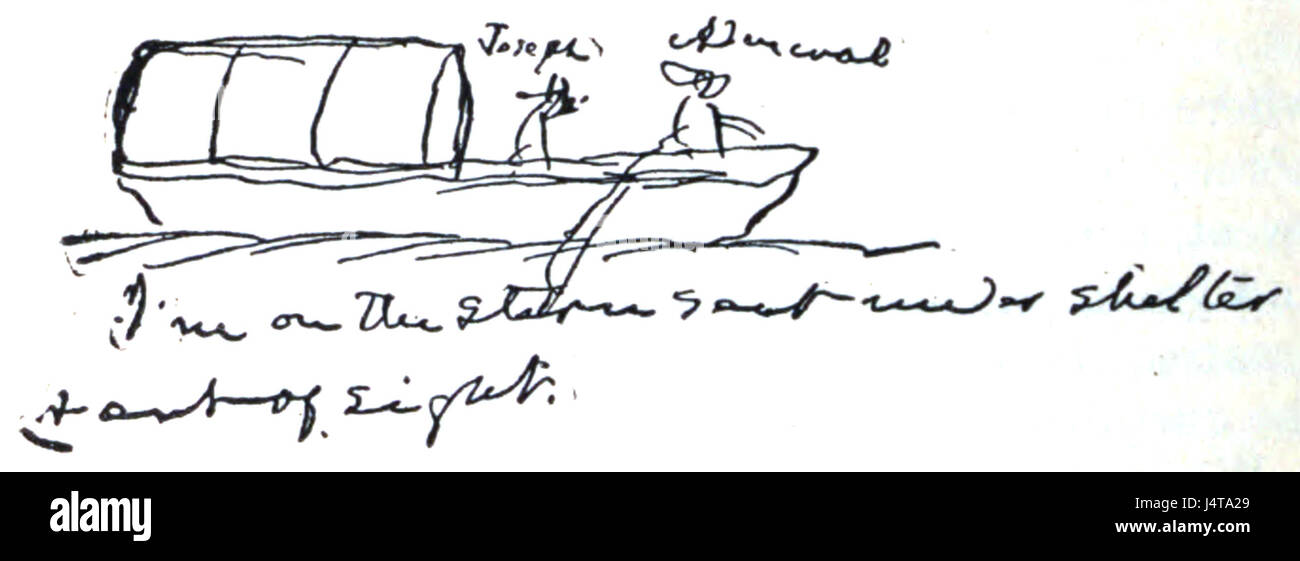 Joseph Admiral
I'm on the stern seat under shelter
& out of sight.
alamy stock photo
J4TA29
www.alamy.com